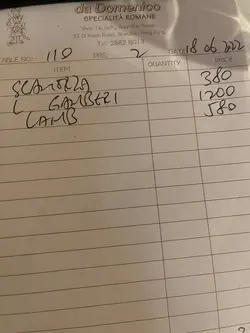 da Domenico
SPECIALITÀ ROMANE
Tel: 2882 8013
TABLE NO: 110 PRS: 2 DATE: 18 06 2022
ITEM QUANTITY PRICE
SCAMOZZA 380
L GAMBERI 1200
LAMB 580